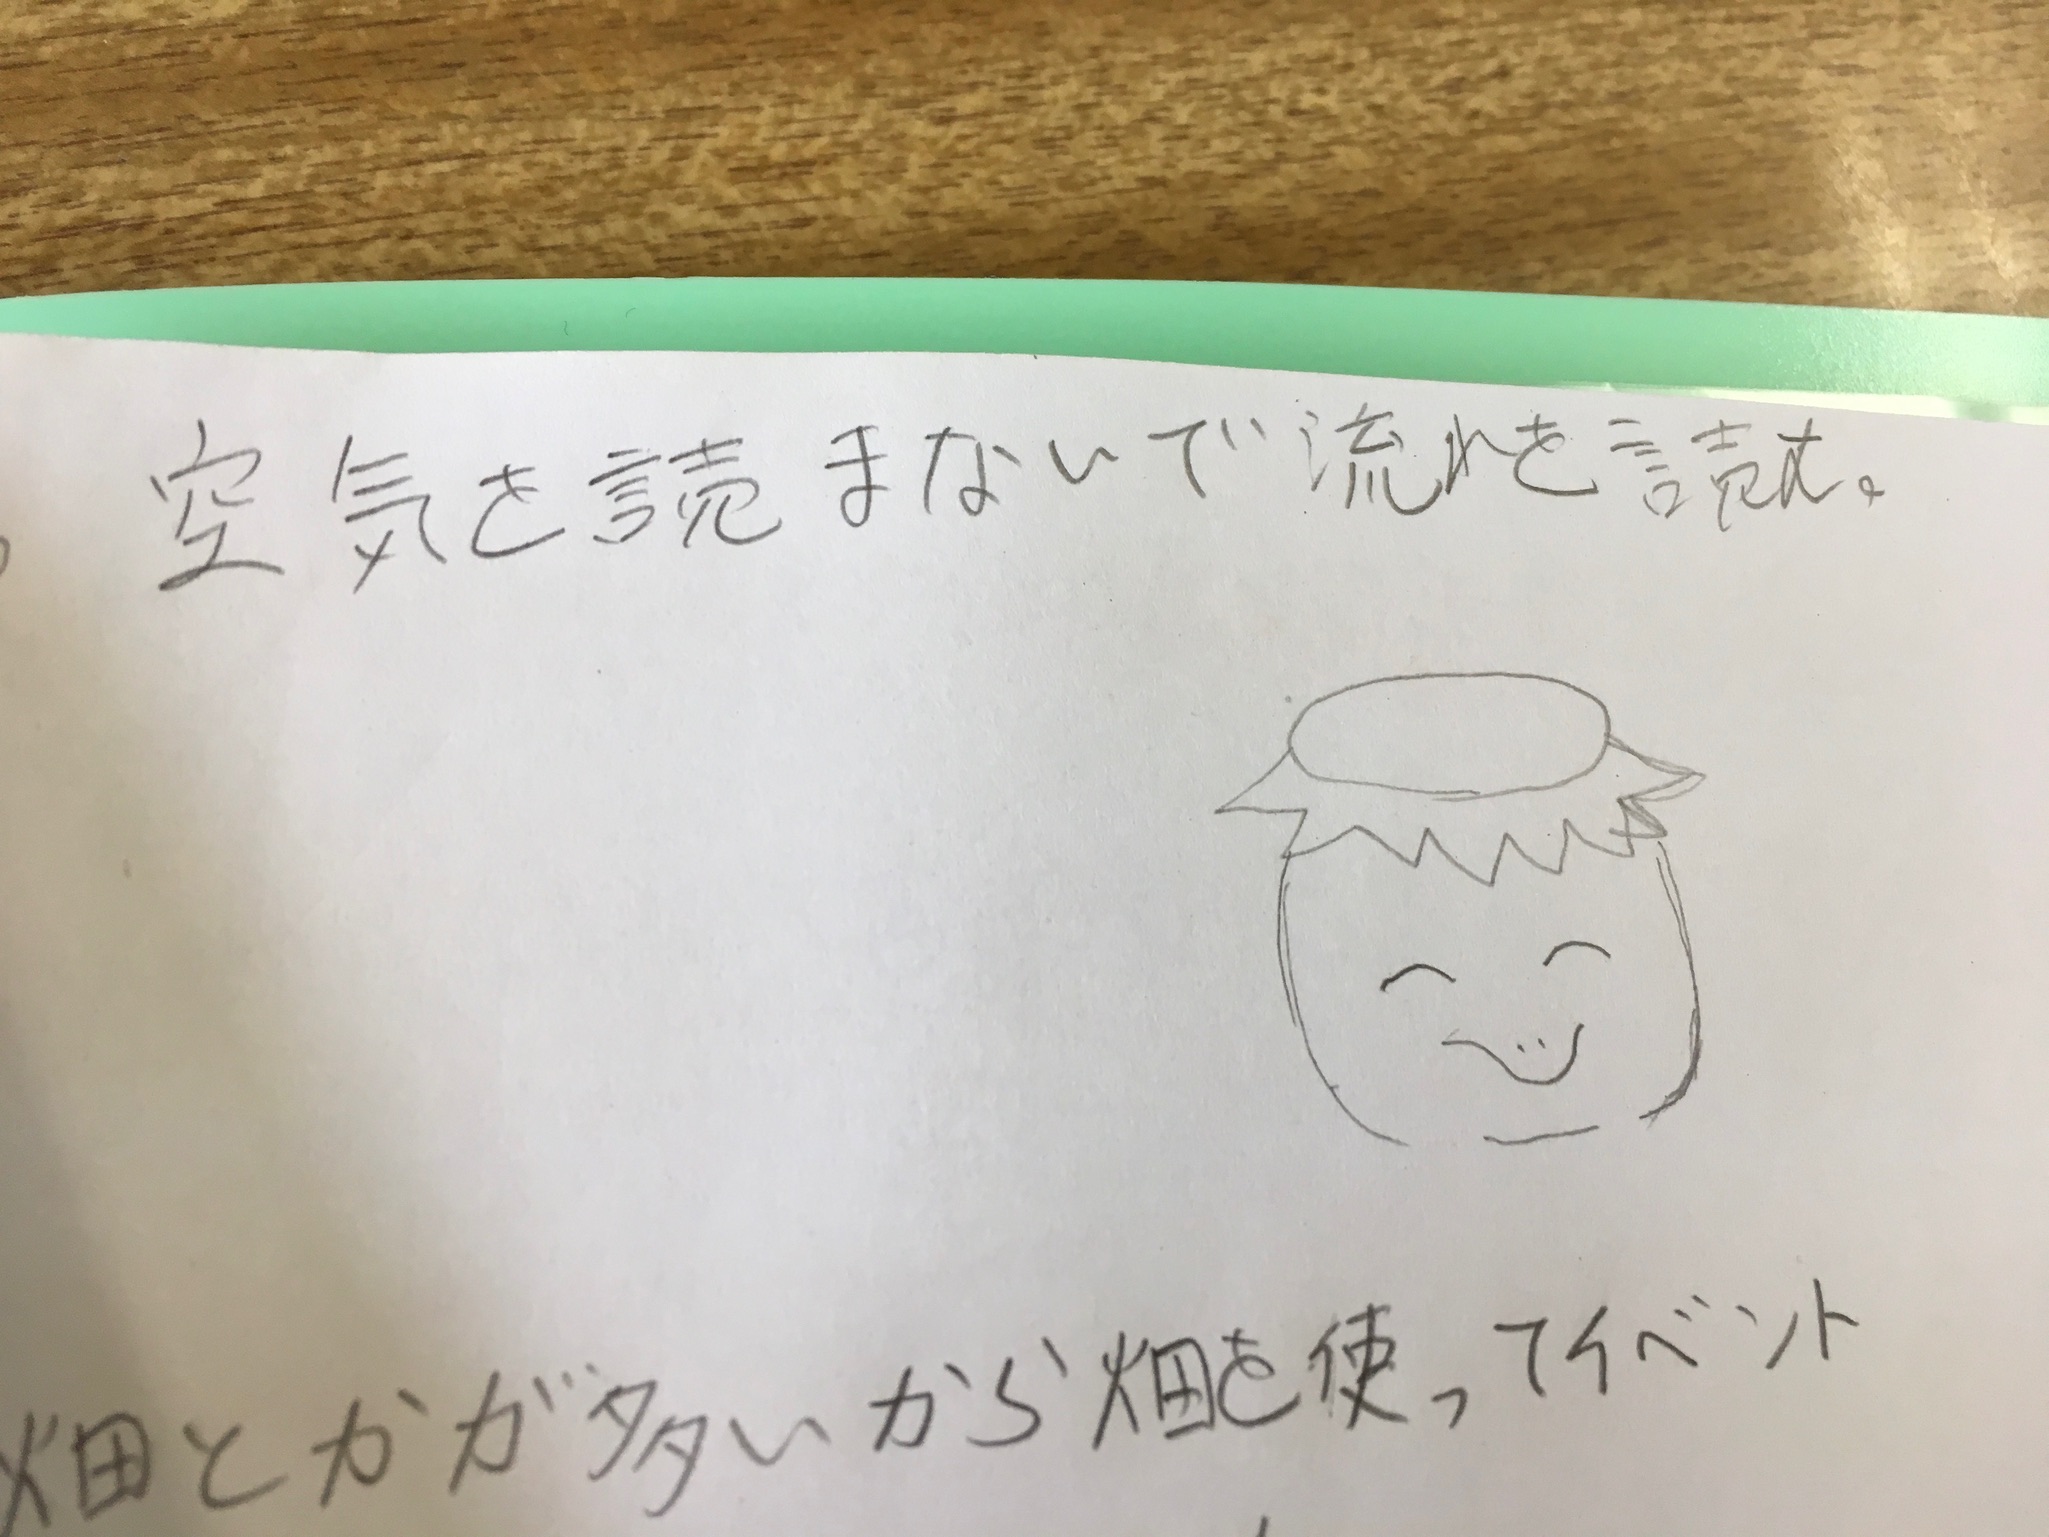 空気を読まないで流れを読む。
畑とかが多いから畑を使ってイベント